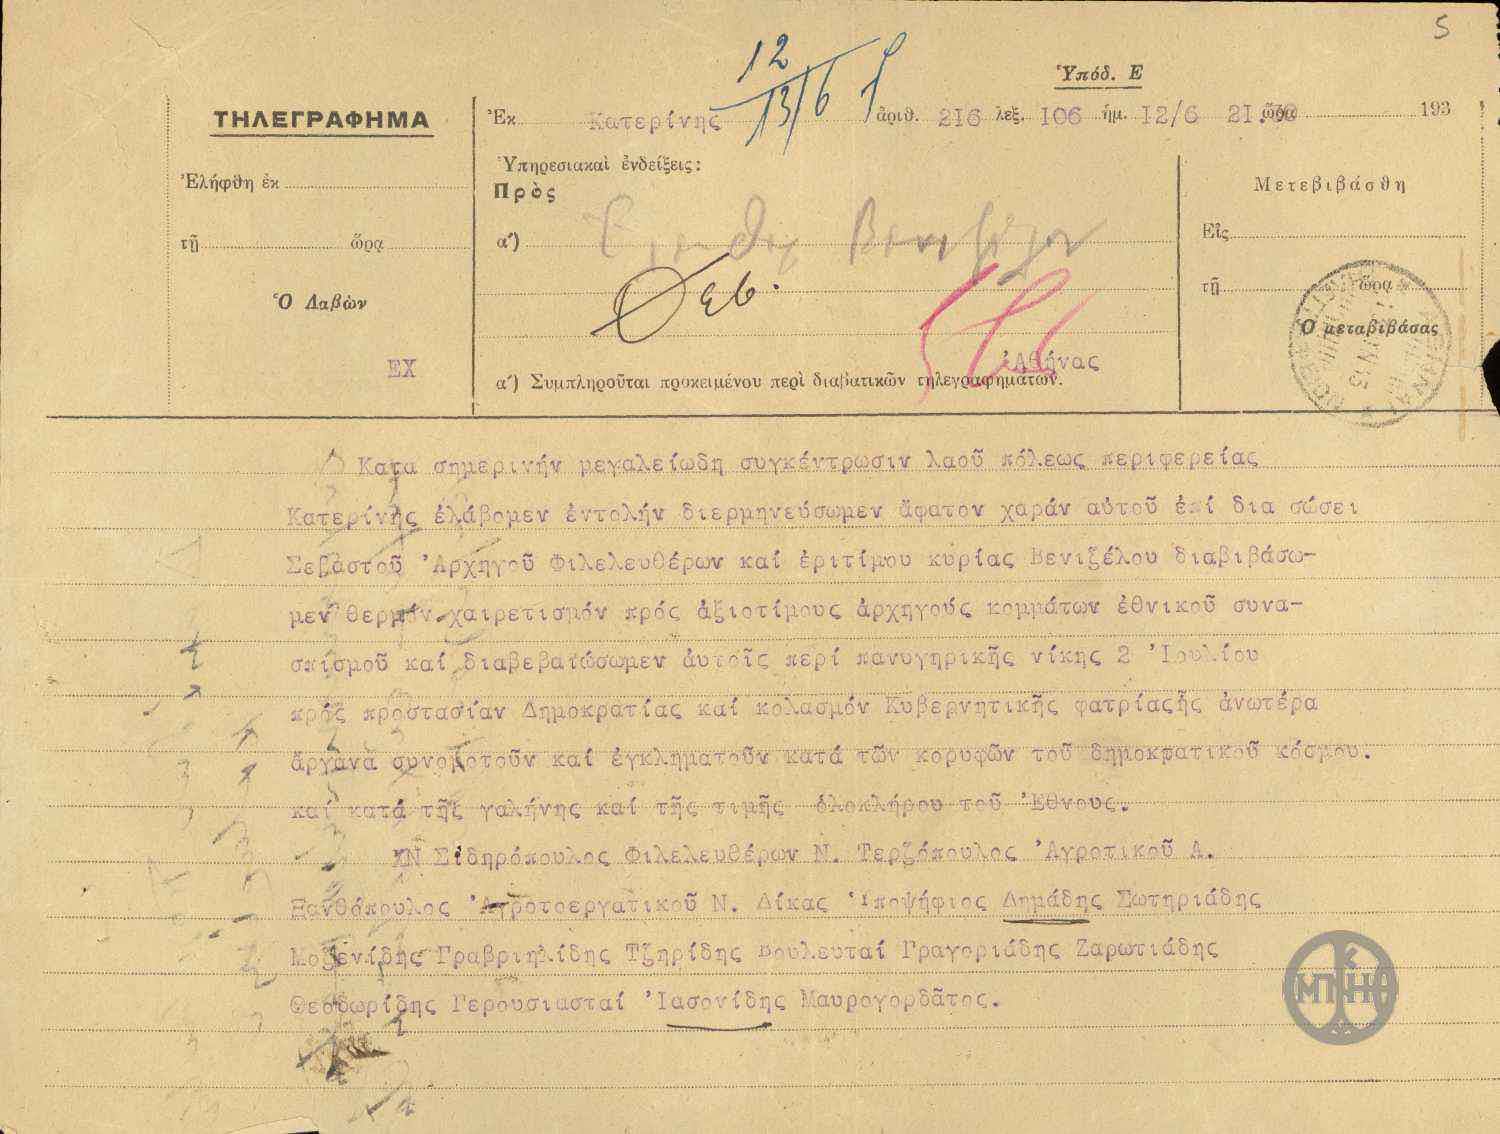 5
12
13/6
Ὑπόδ. Ε
ΤΗΛΕΓΡΑΦΗΜΑ
Ἐκ Κατερίνης ἀριθ. 216 λεξ. 106 ἡμ. 12/6 ὥρᾳ 21. 193
Ἐλήφθη ἐκ
τῇ ὥρᾳ
Ὁ Λαβὼν
ΕΧ
Ὑπηρεσιακαὶ ἐνδείξεις:
Πρὸς
α') Ἐλευθ. Βενιζέλον
Ἀθήνας
α') Συμπληροῦται προκειμένου περὶ διαβατικῶν τηλεγραφημάτων.
Μετεβιβάσθη
Εἰς
τῇ ὥρᾳ
Ὁ μεταβιβάσας
Κατα σημερινήν μεγαλείωδη συγκέντρωσιν λαοῦ πόλεως περιφερείας
Κατερίνης ἐλάβομεν ἐντολήν διερμηνεύσωμεν ἄφατον χαράν αὐτοῦ ἐπί δια σώσει
Σεβαστοῦ Ἀρχηγοῦ Φιλελευθέρων καί ἐριτίμου κυρίας Βενιζέλου διαβιβάσω-
μεν θερμόν χαιρετισμόν πρός ἀξιοτίμους ἀρχηγούς κομμάτων ἐθνικοῦ συνα-
σπισμοῦ καί διαβεβαιώσωμεν ἀυτοῖς περί πανυγηρικῆς νίκης 2 Ἰουλίου
πρός προστασίαν Δημοκρατίας καί κολασμόν Κυβερνητικῆς φατρίαςῆς ἀνωτέρα
ἄργανα συνομοτοῦν καί ἐγκληματοῦν κατά τῶν κορυφῶν τοῦ δημοκρατικοῦ κόσμου.
καί κατά τῆς γαλήνης καί τῆς τιμῆς ὁλοκλήρου τοῦ Ἔθνους.
Ν Σιδηρόπουλος Φιλελευθέρων Ν. Τερζόπουλος Ἀγροτικοῦ Α.
Ξανθόπουλος Ἀγροτοεργατικοῦ Ν. Δίκας Ὑποψήφιος Δημάδης Σωτηριάδης
Μοζενίδης Γραβριηλίδης Τζηρίδης Βουλευταί Γραγοριάδης Ζαρωτιάδης
Θεοδωρίδης Γερουσιασταί Ἰασονίδης Μαυρογορδᾶτος.